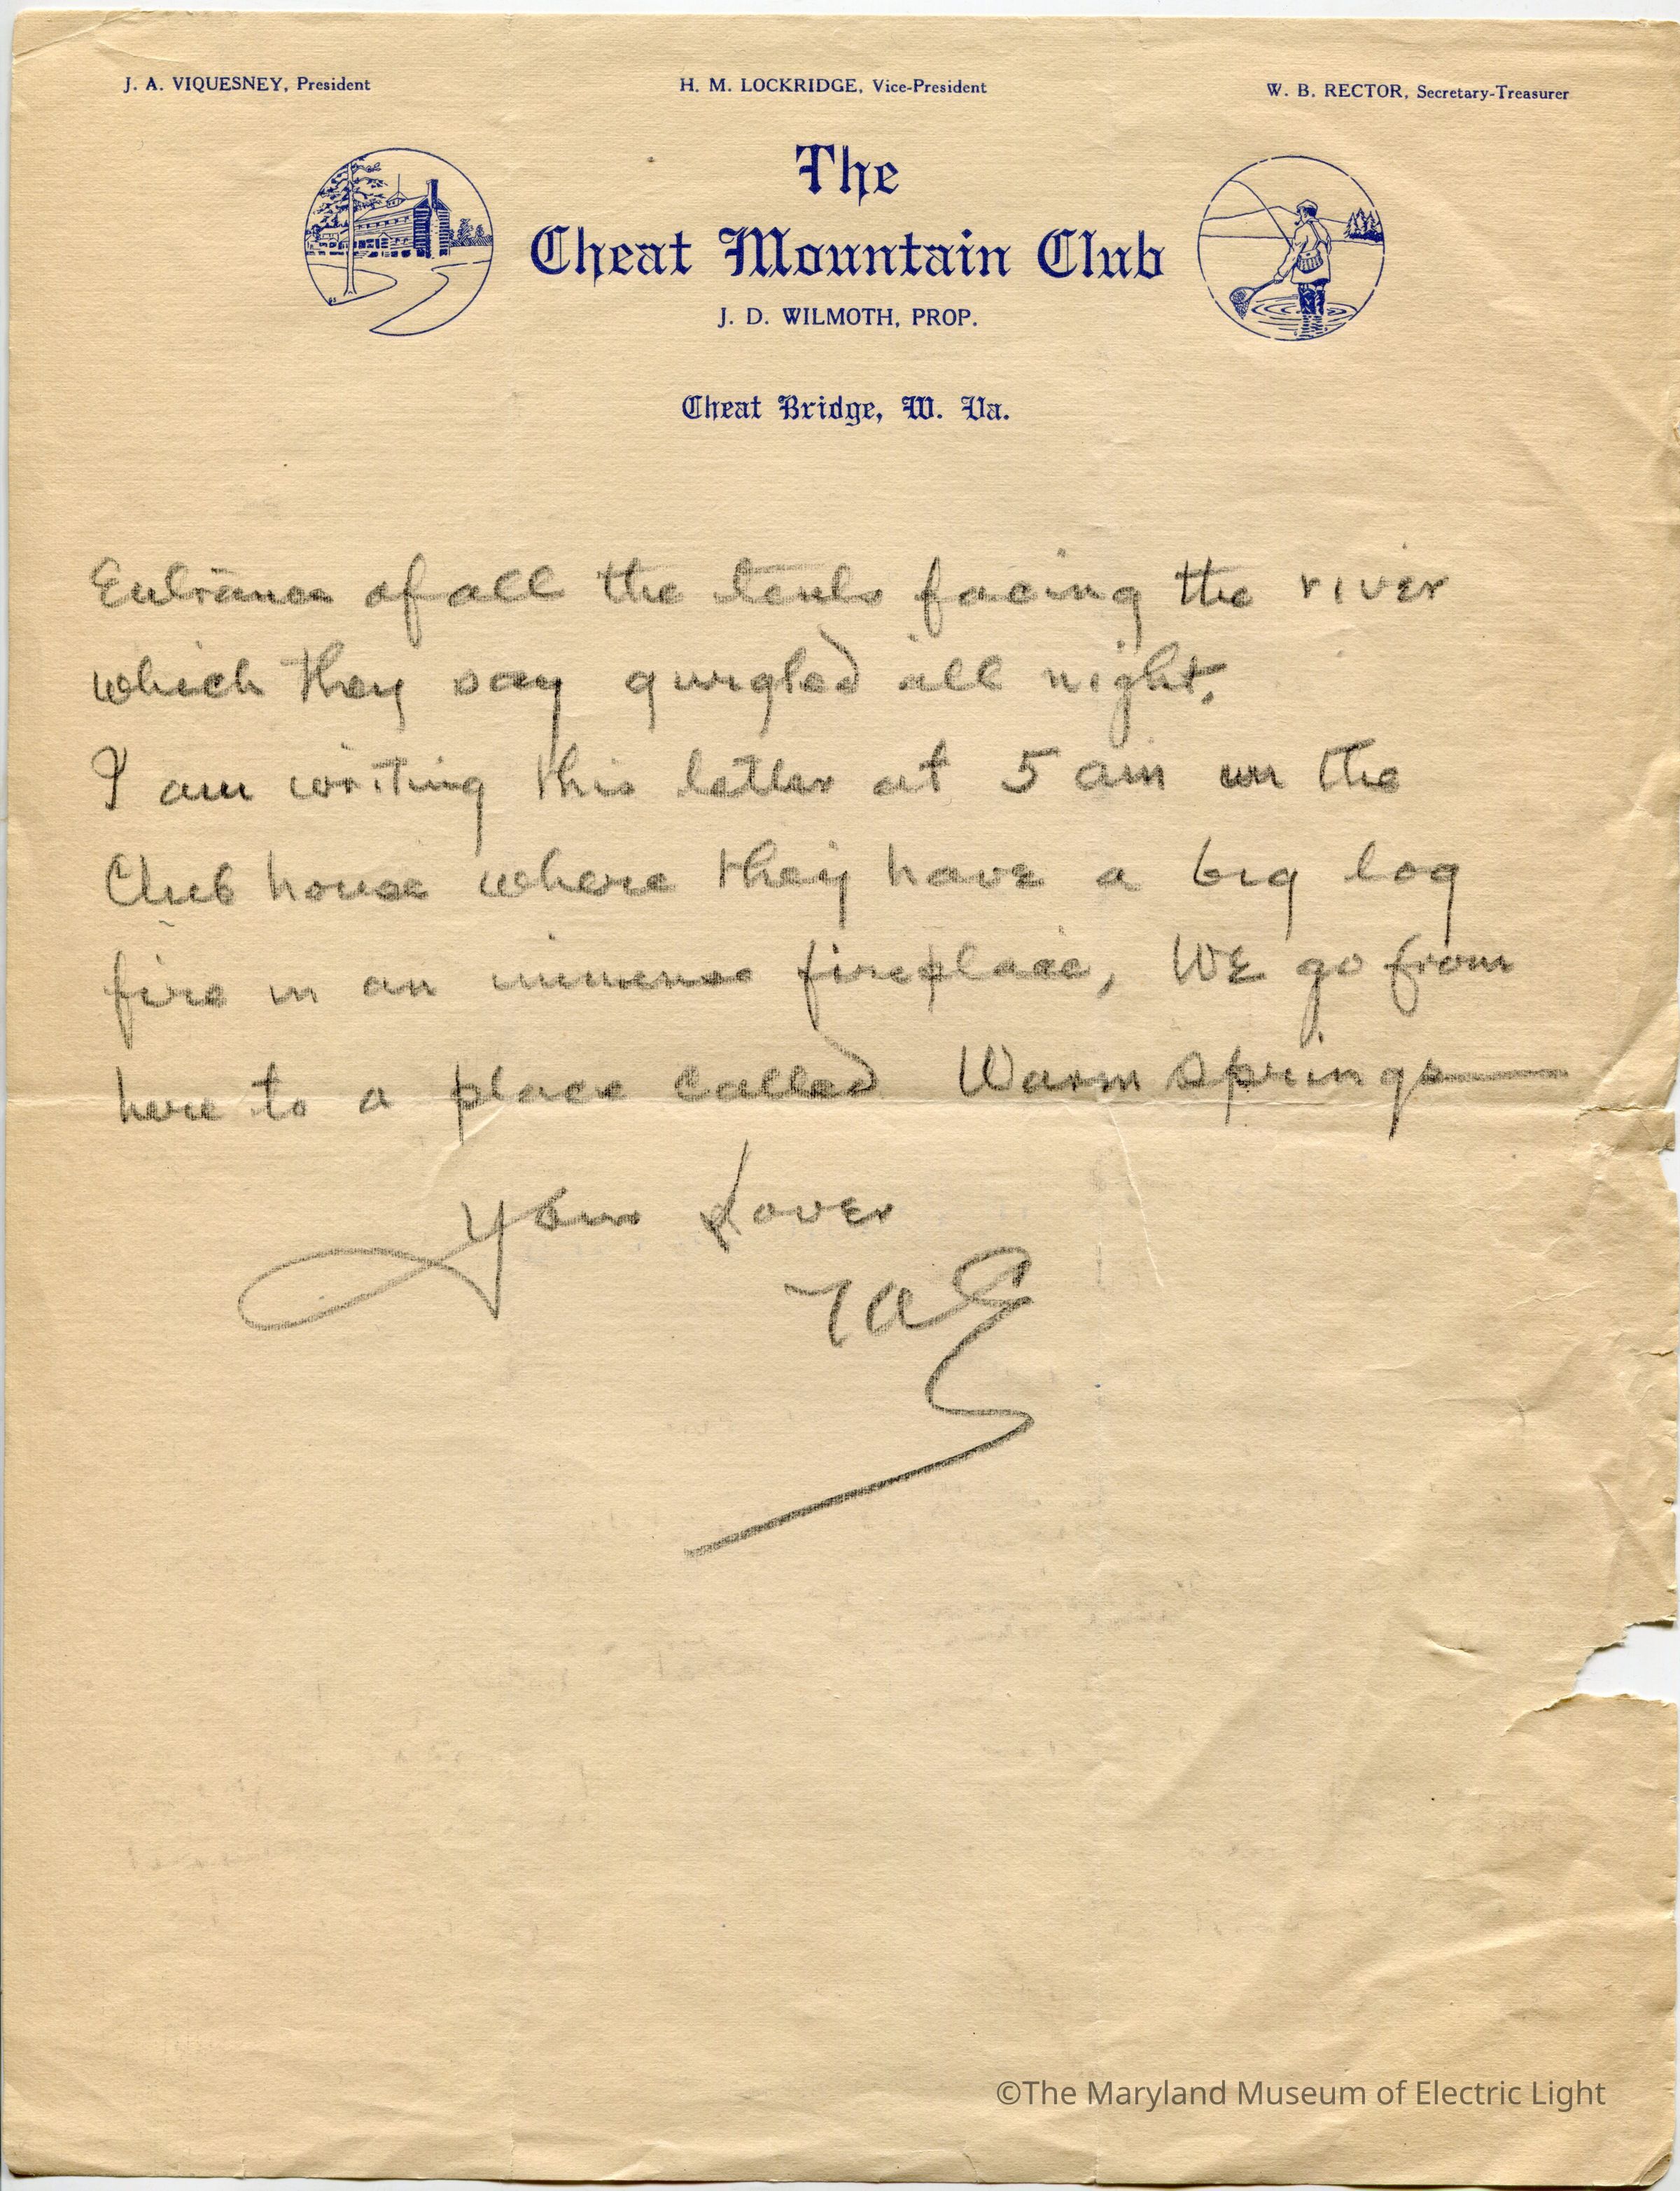 J. A. VIQUESNEY, President H. M. LOCKRIDGE, Vice-President W. B. RECTOR, Secretary-Treasurer
The
Cheat Mountain Club
J. D. WILMOTH, PROP.
Cheat Bridge, W. Va.
Entrance of all the tents facing the river
which they say gurgled all night.
I am writing this letter at 5 am in the
Club house where they have a big log
fire in an immense fireplace, We go from
here to a place called Warm Springs—
Your Lover
TAE
©The Maryland Museum of Electric Light